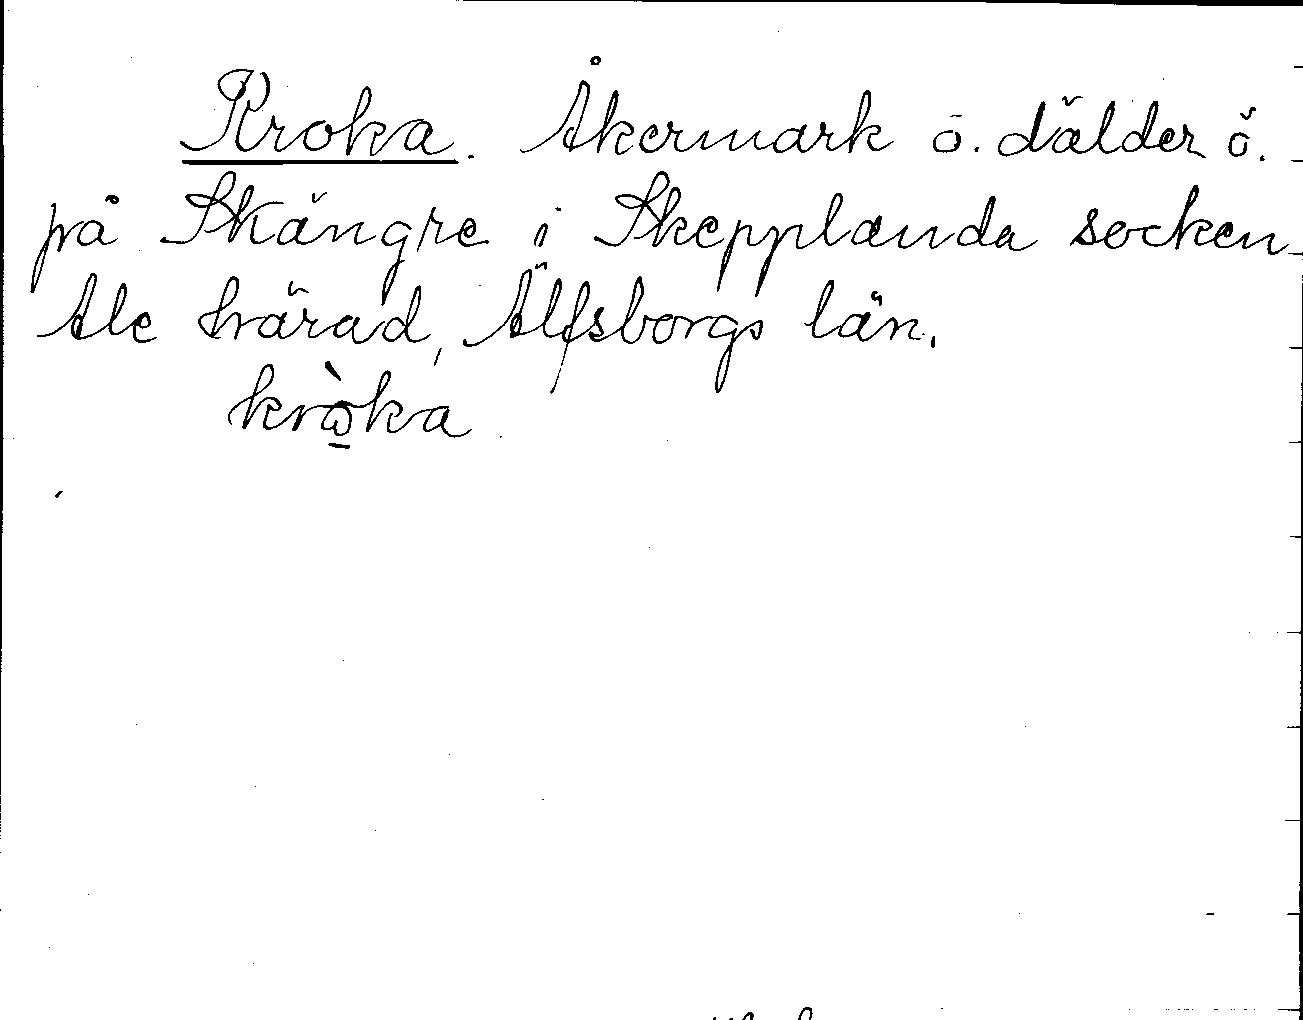 Kroka. Åkermark o. dälder ö.
på Skängre i Skepplanda socken
Ale härad, Älfsborgs län.
kròka